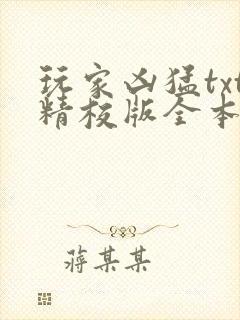 玩家凶猛txt
精校版全本
蒋某某